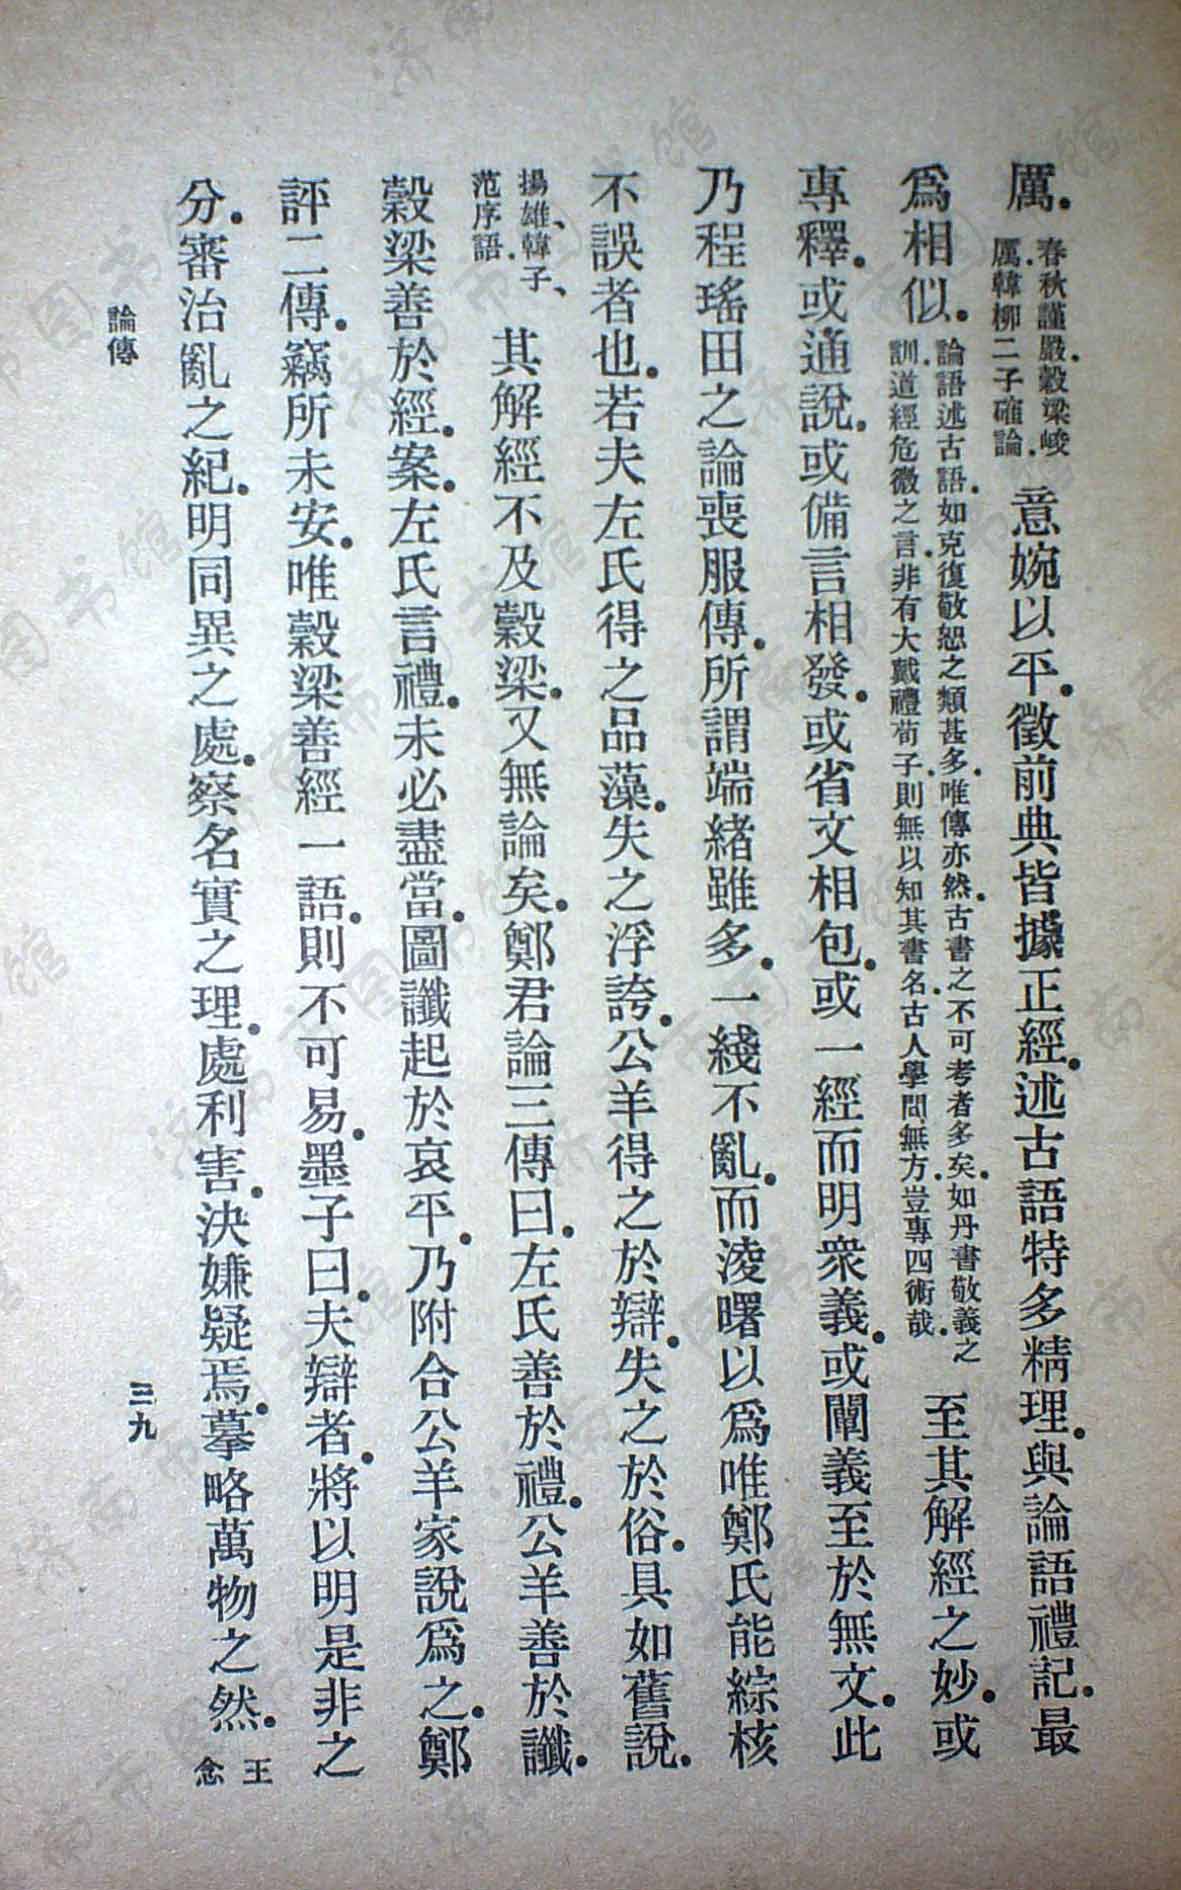 厲。春秋謹嚴。穀梁峻厲。韓柳二子確論。意婉以平。徵前典皆據正經。述古語特多精理。與論語禮記。最
爲相似。論語述古語。如克復敬恕之類甚多。唯傳亦然。古書之不可考者多矣。如丹書敬義之訓。道經危微之言。非有大戴禮荀子。則無以知其書名。古人學問無方。豈專四術哉。至其解經之妙。或
專釋。或通說。或備言相發。或省文相包。或一經而明衆義。或闡義至於無文。此
乃程瑤田之論喪服傳。所謂端緒雖多。一綫不亂。而淩曙以爲唯鄭氏能綜核
不誤者也。若夫左氏得之品藻。失之浮誇。公羊得之於辯。失之於俗。具如舊說。
揚雄、韓子、范序語。其解經不及穀梁。又無論矣。鄭君論三傳曰。左氏善於禮。公羊善於讖。
穀梁善於經。案。左氏言禮。未必盡當。圖讖起於哀平。乃附合公羊家說爲之。鄭
評二傳。竊所未安。唯穀梁善經一語。則不可易。墨子曰。夫辯者。將以明是非之
分。審治亂之紀。明同異之處。察名實之理。處利害。決嫌疑焉。摹略萬物之然。王念
論傳
三九